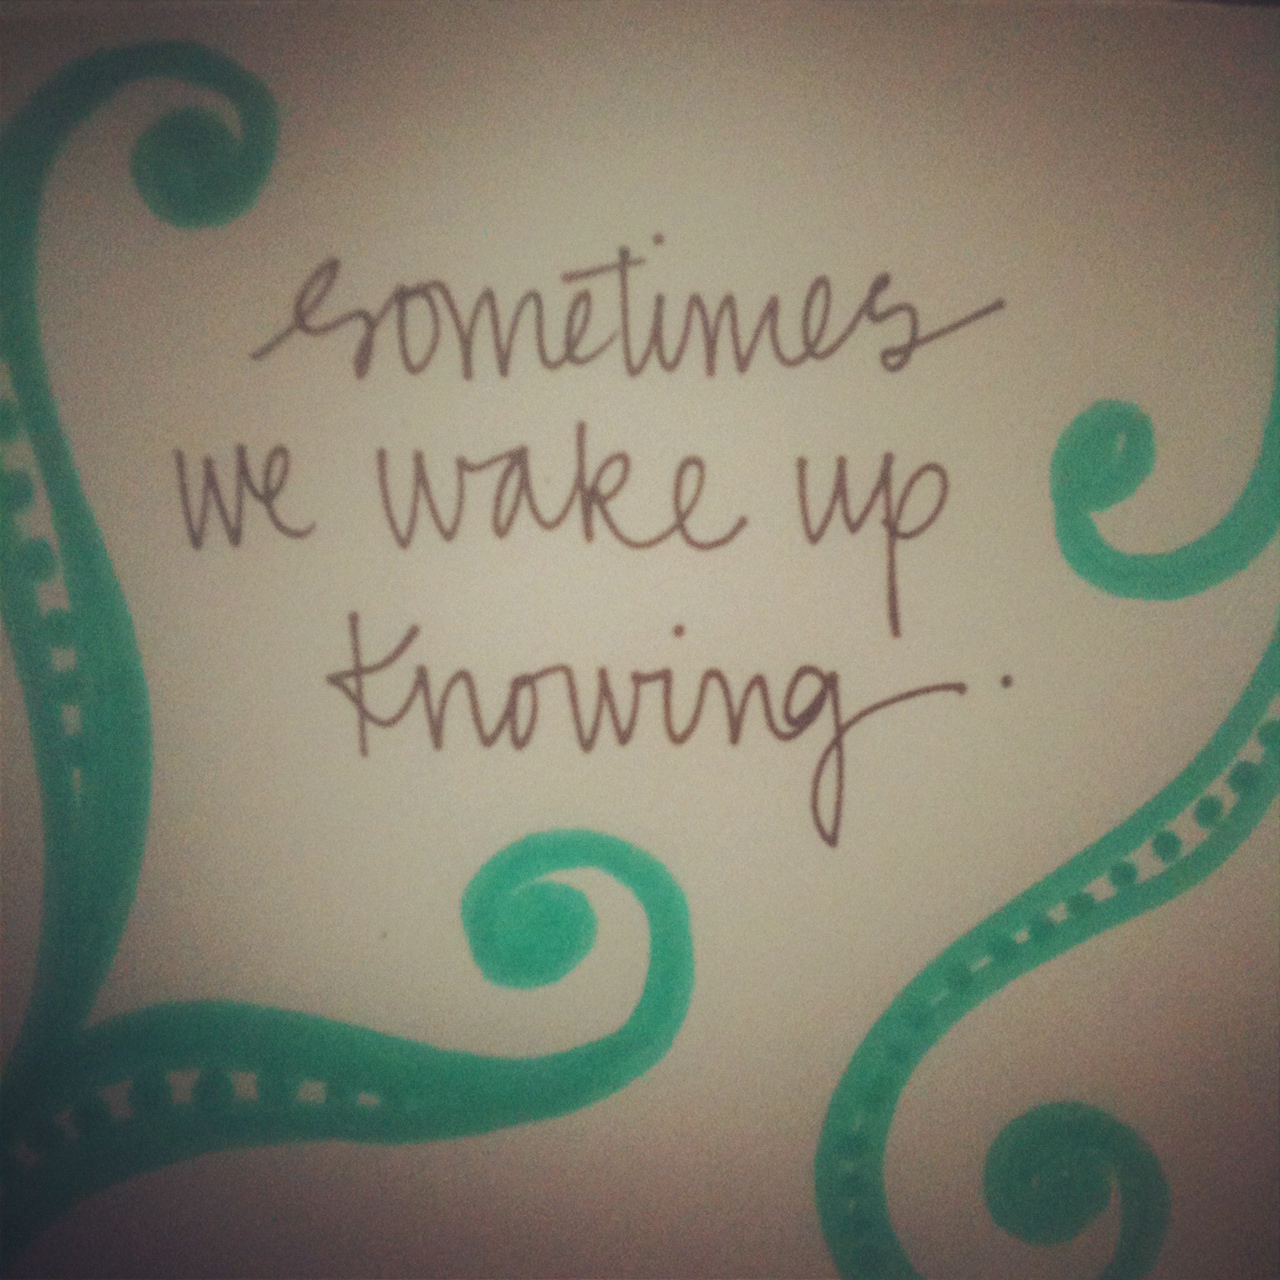 sometimes
we wake up
knowing.